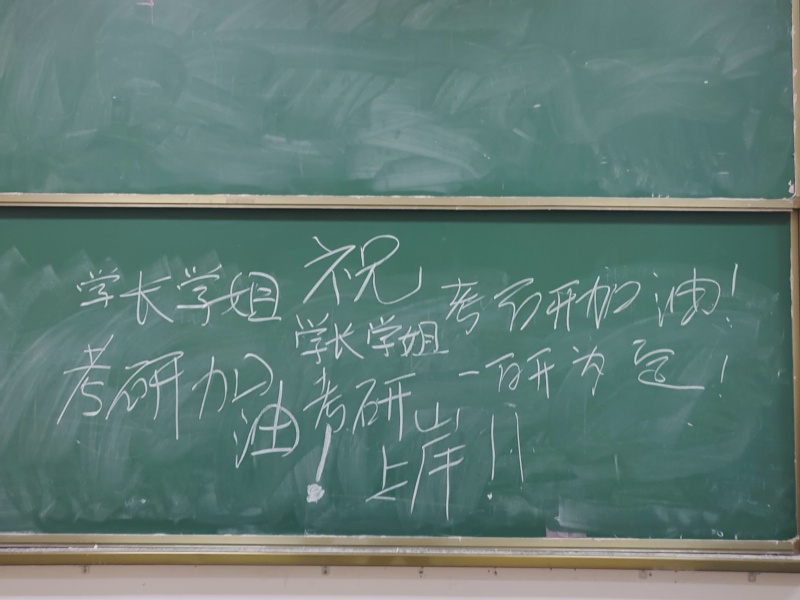 学长学姐
考研加
油!
祝
学长学姐
考研
上岸!!
考研加油!
一研为定!